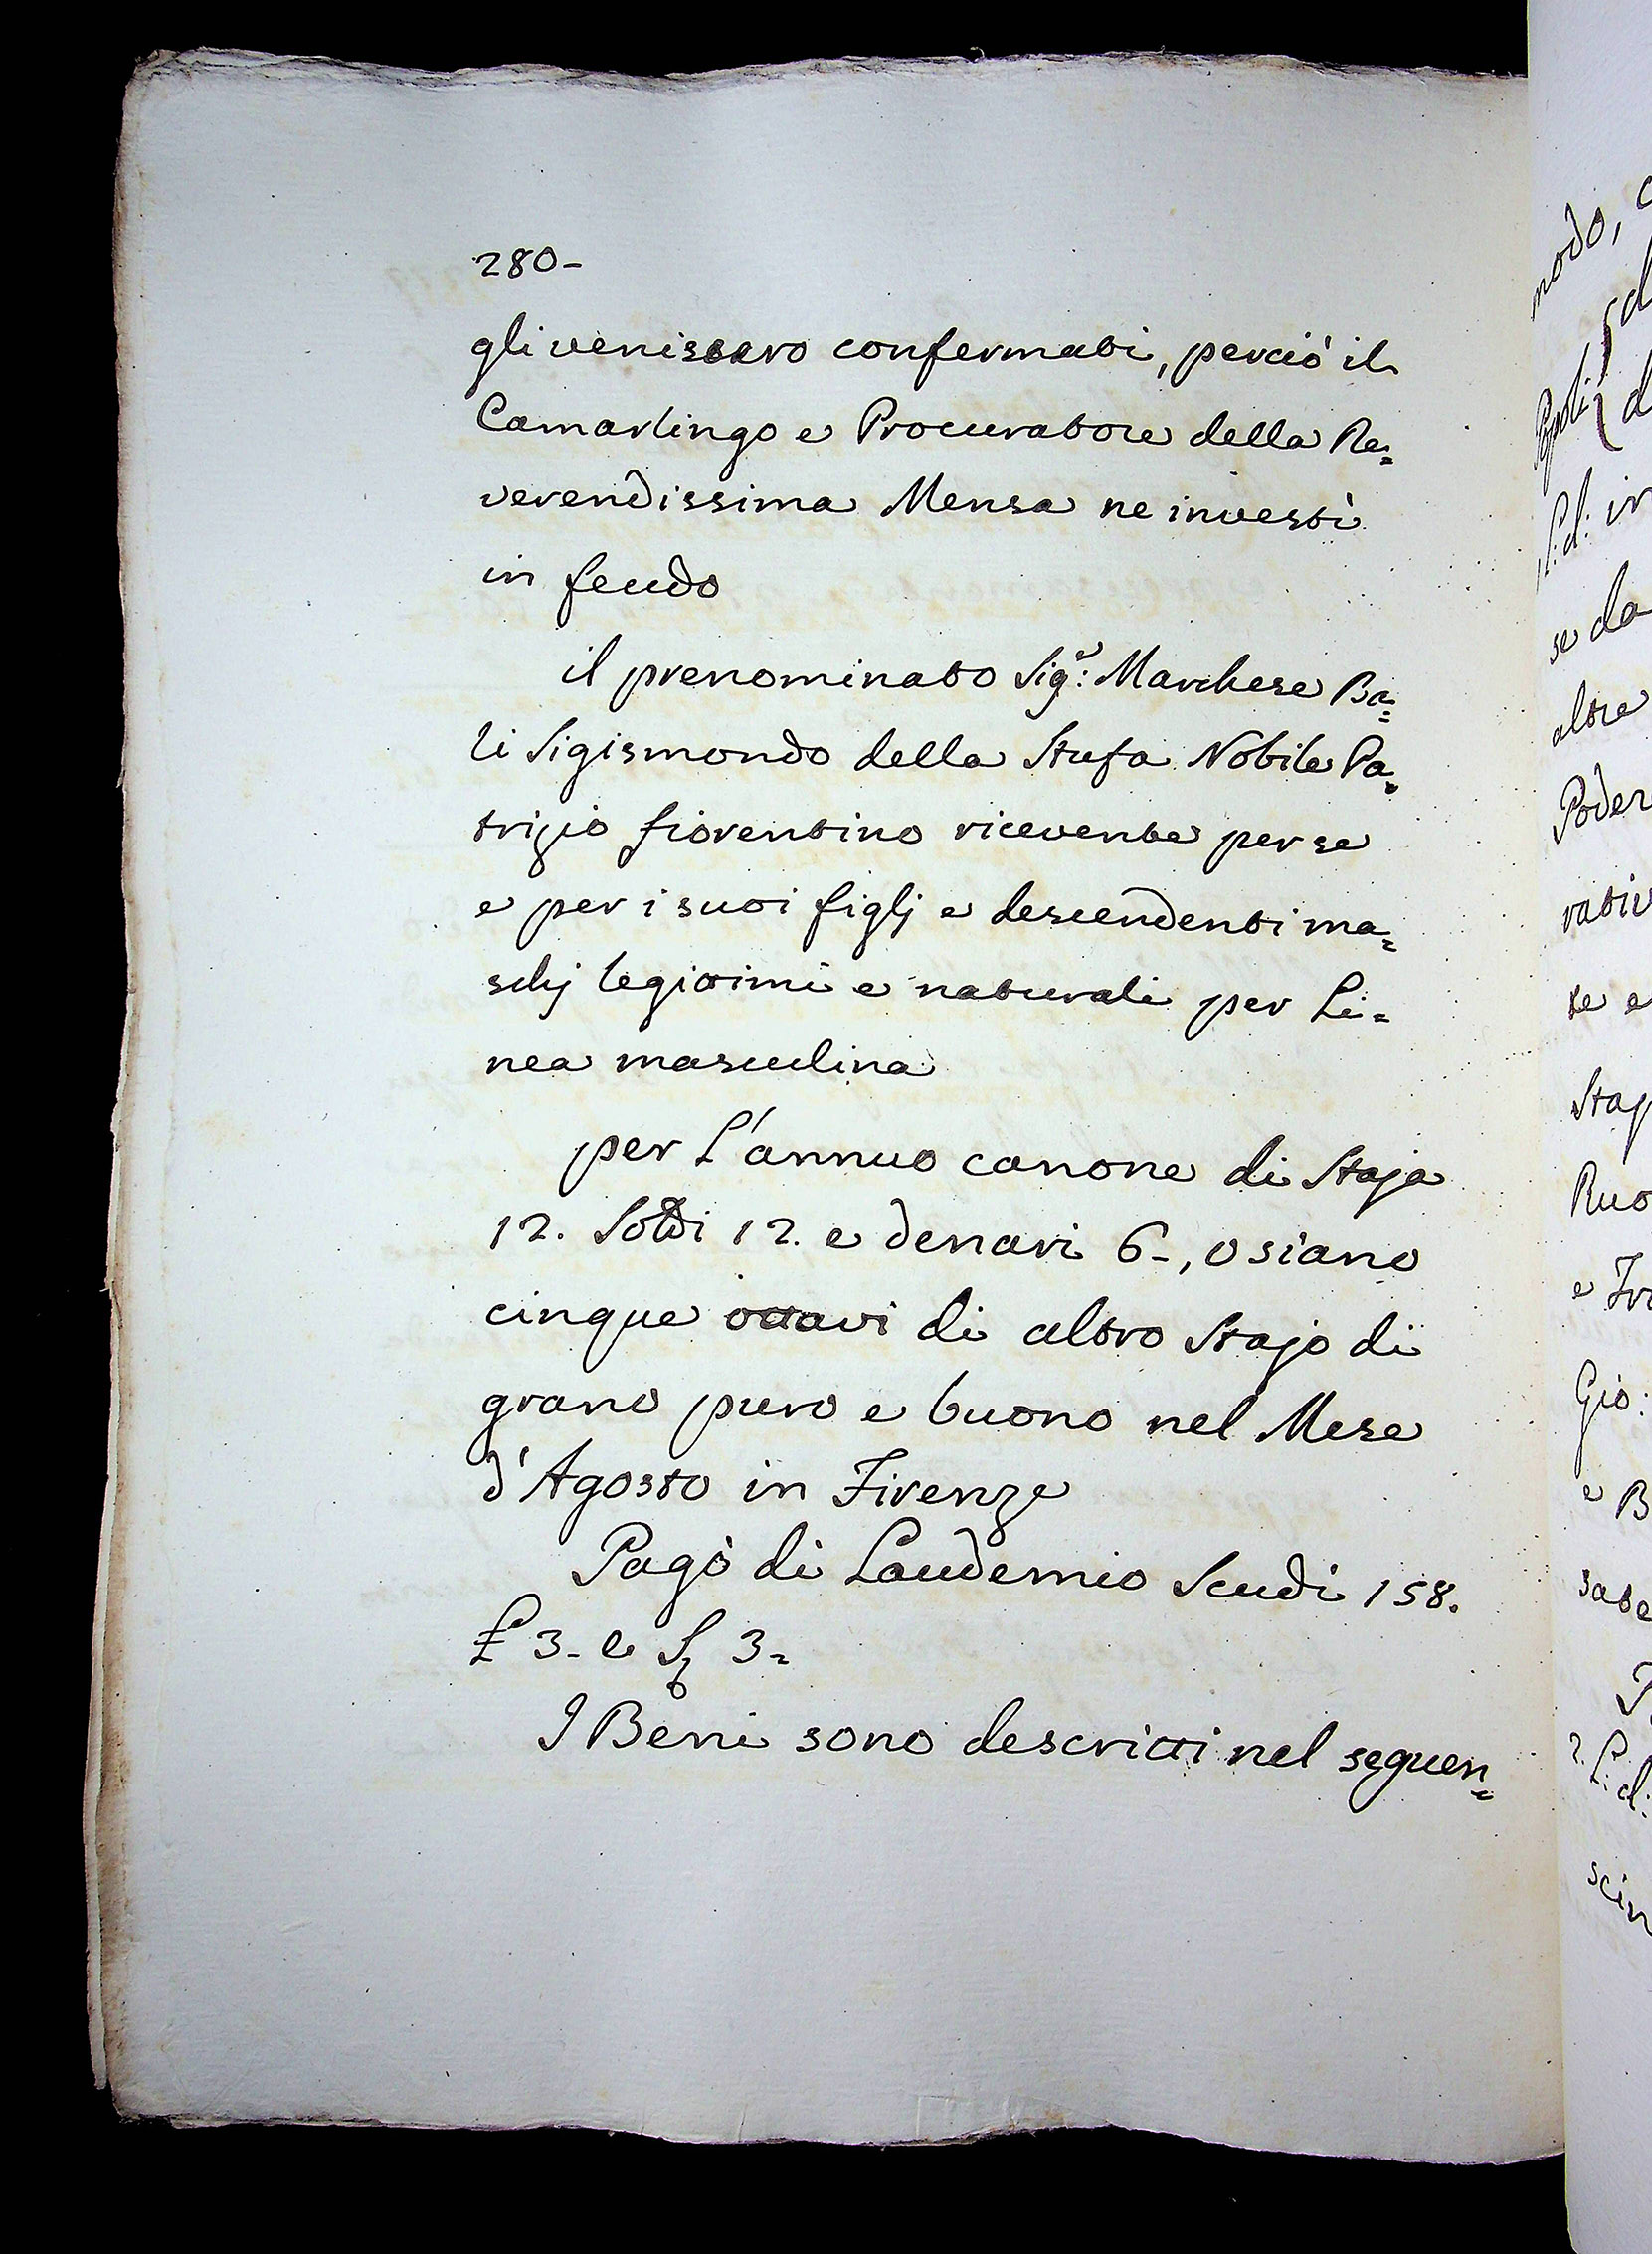 280-
gli venissero confermati, perciò il
Camarlingo e Procuratore della Re=
verendissima Mensa ne investì
in feudo
il prenominato Sig.r: Marchese Ba=
li Sigismondo della Stufa Nobile Pa=
trizio fiorentino ricevente per se
e per i suoi figlj e descendenti ma=
schj legittimi e naturali per Li=
nea masculina
per L'annuo canone di Staja
12. Soldi 12. e denari 6-, o siano
cinque ottavi di altro Stajo di
grano puro e buono nel Mese
d'Agosto in Firenze
Pagò di Laudemio Scudi 158.
£ 3- e 3=
I Beni sono descritti nel seguen=
modo,
Popoli
L: d: in
se da
altre
Poder
rativ
te e
Staj
Ruo
e Fr
Gio:
e B
sate
2. L: d:
scin